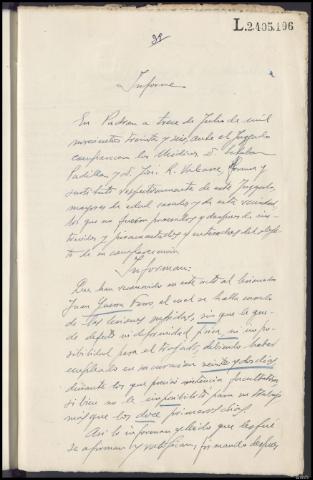 L.2405.196
39
Informe
En Padron a trece de Julio de mil
novecientos treinta y seis, ante el Juzgado
comparecen los Médicos D.
Padilla y D. José R. forense y
sustituto respectivamente de este Juzgado,
mayores de edad casados y de esta vecindad
los que no fueron procesados y despues de ins-
truidos y juramentados y enterados del objeto
de su comparecencia
Informan:
Que han reconocido en este acto al lesionado
Juan Guerra el cual se halla curado
de las lesiones sufridas, sin que le que-
de defecto ni deformidad para ni impo-
sibilidad para el trabajo, debiendo haber
empleado en su curacion veinte y dos dias
durante los que precisó asistencia facultativa
si bien no le imposibilitó para su trabajo
más que los doce primeros dias.
Asi lo informan y leido que les fué
se afirman y ratifican, firmando despues